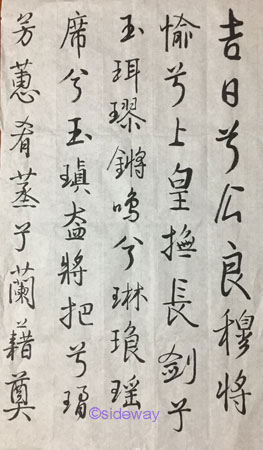 吉日兮良穆將
愉兮上皇撫長劍兮
玉珥璆鏘鳴兮琳琅瑶
席兮玉瑱盍將把兮瓊
芳蕙肴蒸兮蘭藉奠
©sideway